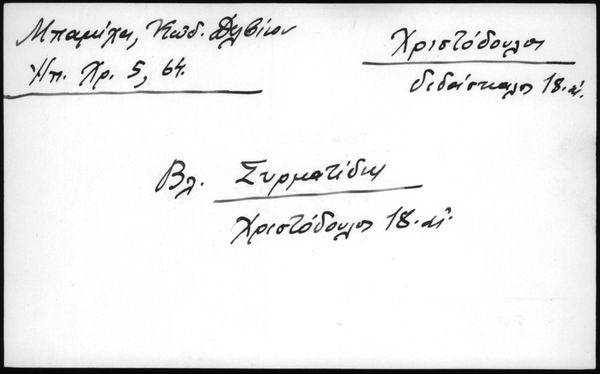 Μπαμίχα, Κώδ. Δελβίνου
Ἠπ. Χρ. 5, 64.
Χριστόδουλος
διδάσκαλος 18. αἰ.
Βλ. Συρματίδης
Χριστόδουλος 18. αἰ.